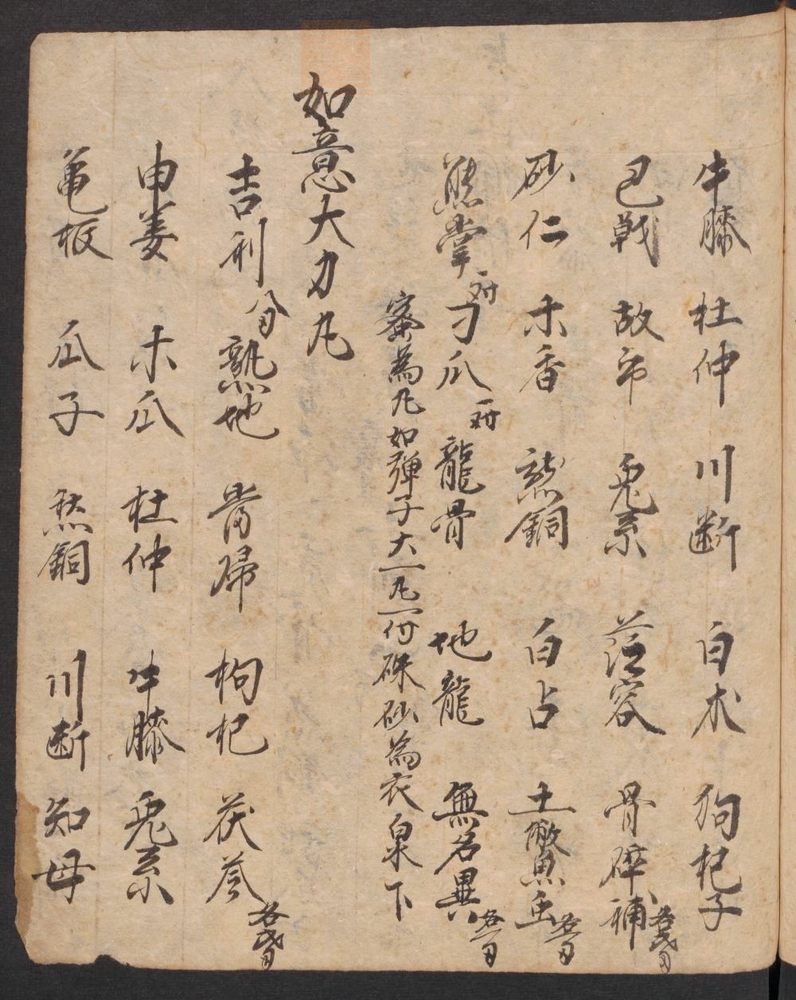 牛膝 杜仲 川断 白术 狗杞子
巴戟 故帋 兎糸 苁容 骨碎補
砂仁 木香 然銅 白占 土鱉虫
熊掌一对 刁爪一对 龍骨 地龍 無名異
蜜為丸如弹子大一丸一付硃砂為衣泉下
如意大力丸
吉利 熟地 當帰 枸杞 茯苓
申姜 木瓜 杜仲 牛膝 兎糸
亀板 瓜子 然銅 川断 知母